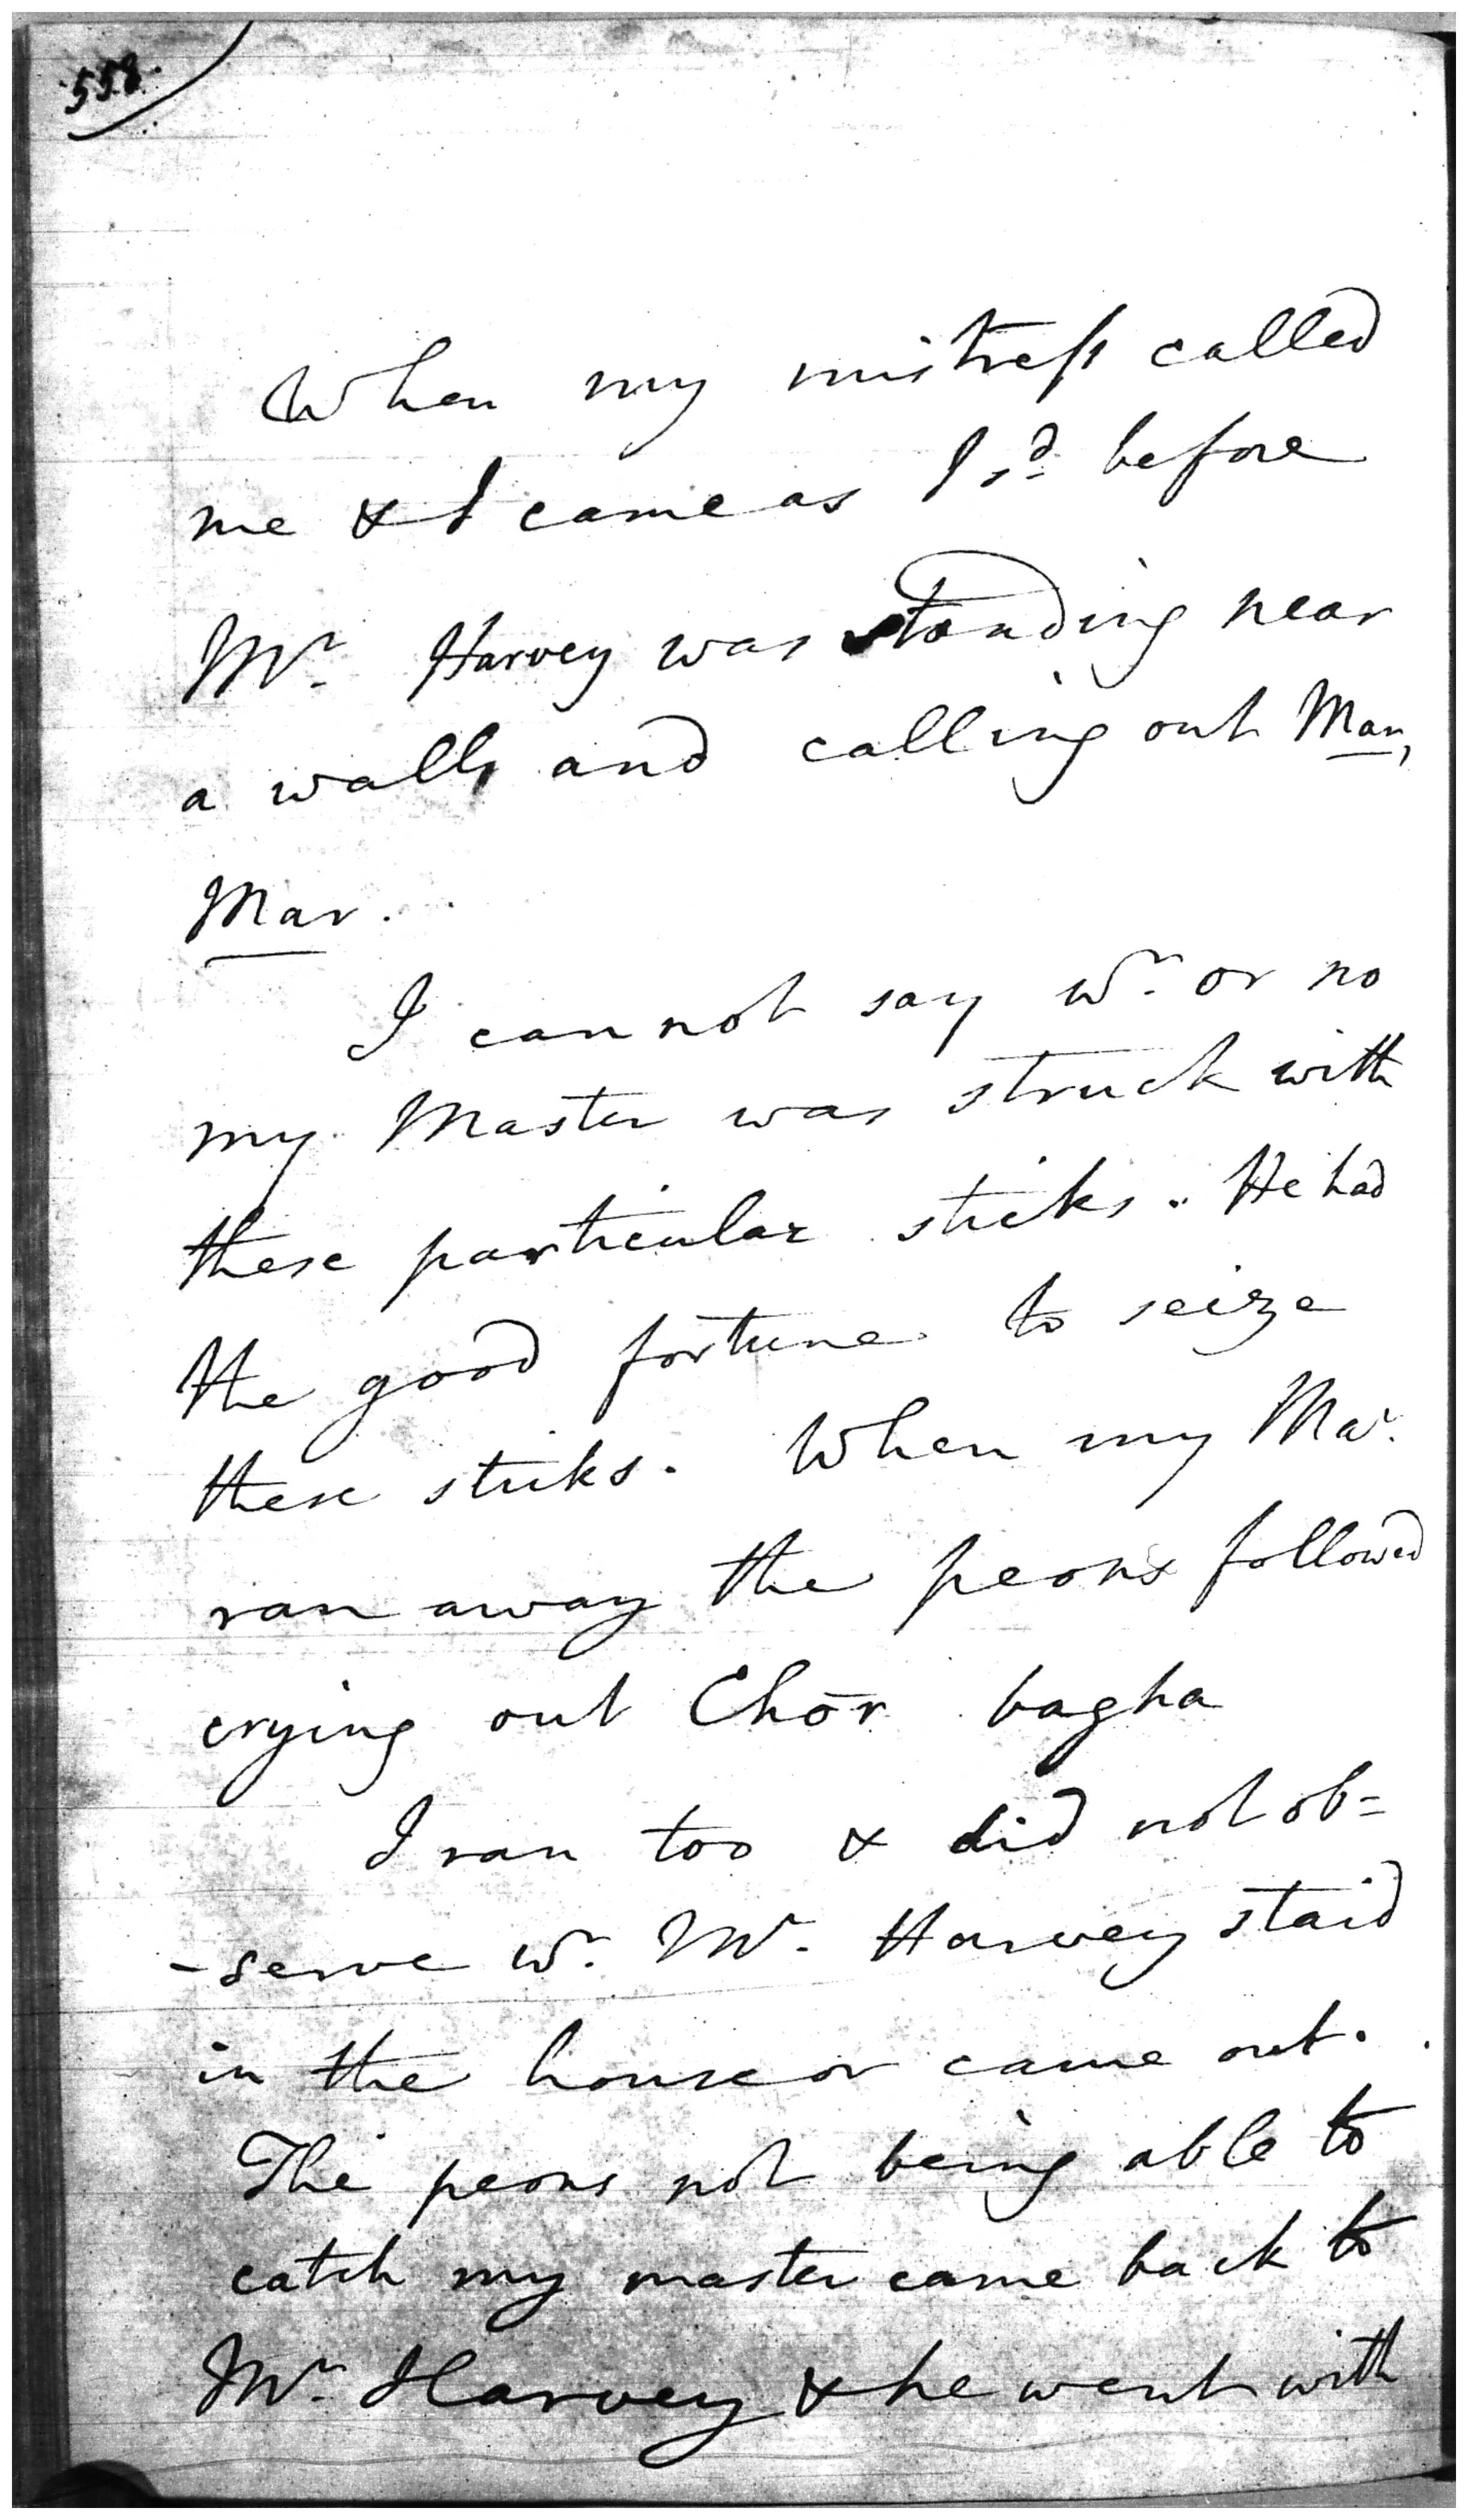 558.
When my mistress called
me & I came as I sd. before
Mr. Harvey was standing near
a wall, and calling out Mar,
Mar.
I cannot say wr. or no
my Master was struck with
these particular sticks. He had
the good fortune to seize
these sticks. When my Mar.
ran away the peons followed
crying out Chōr bagha
I ran too & did not ob=
-serve wr. Mr. Harvey staid
in the house or came out.
The peons not being able to
catch my master came back to
Mr. Harvey & he went with